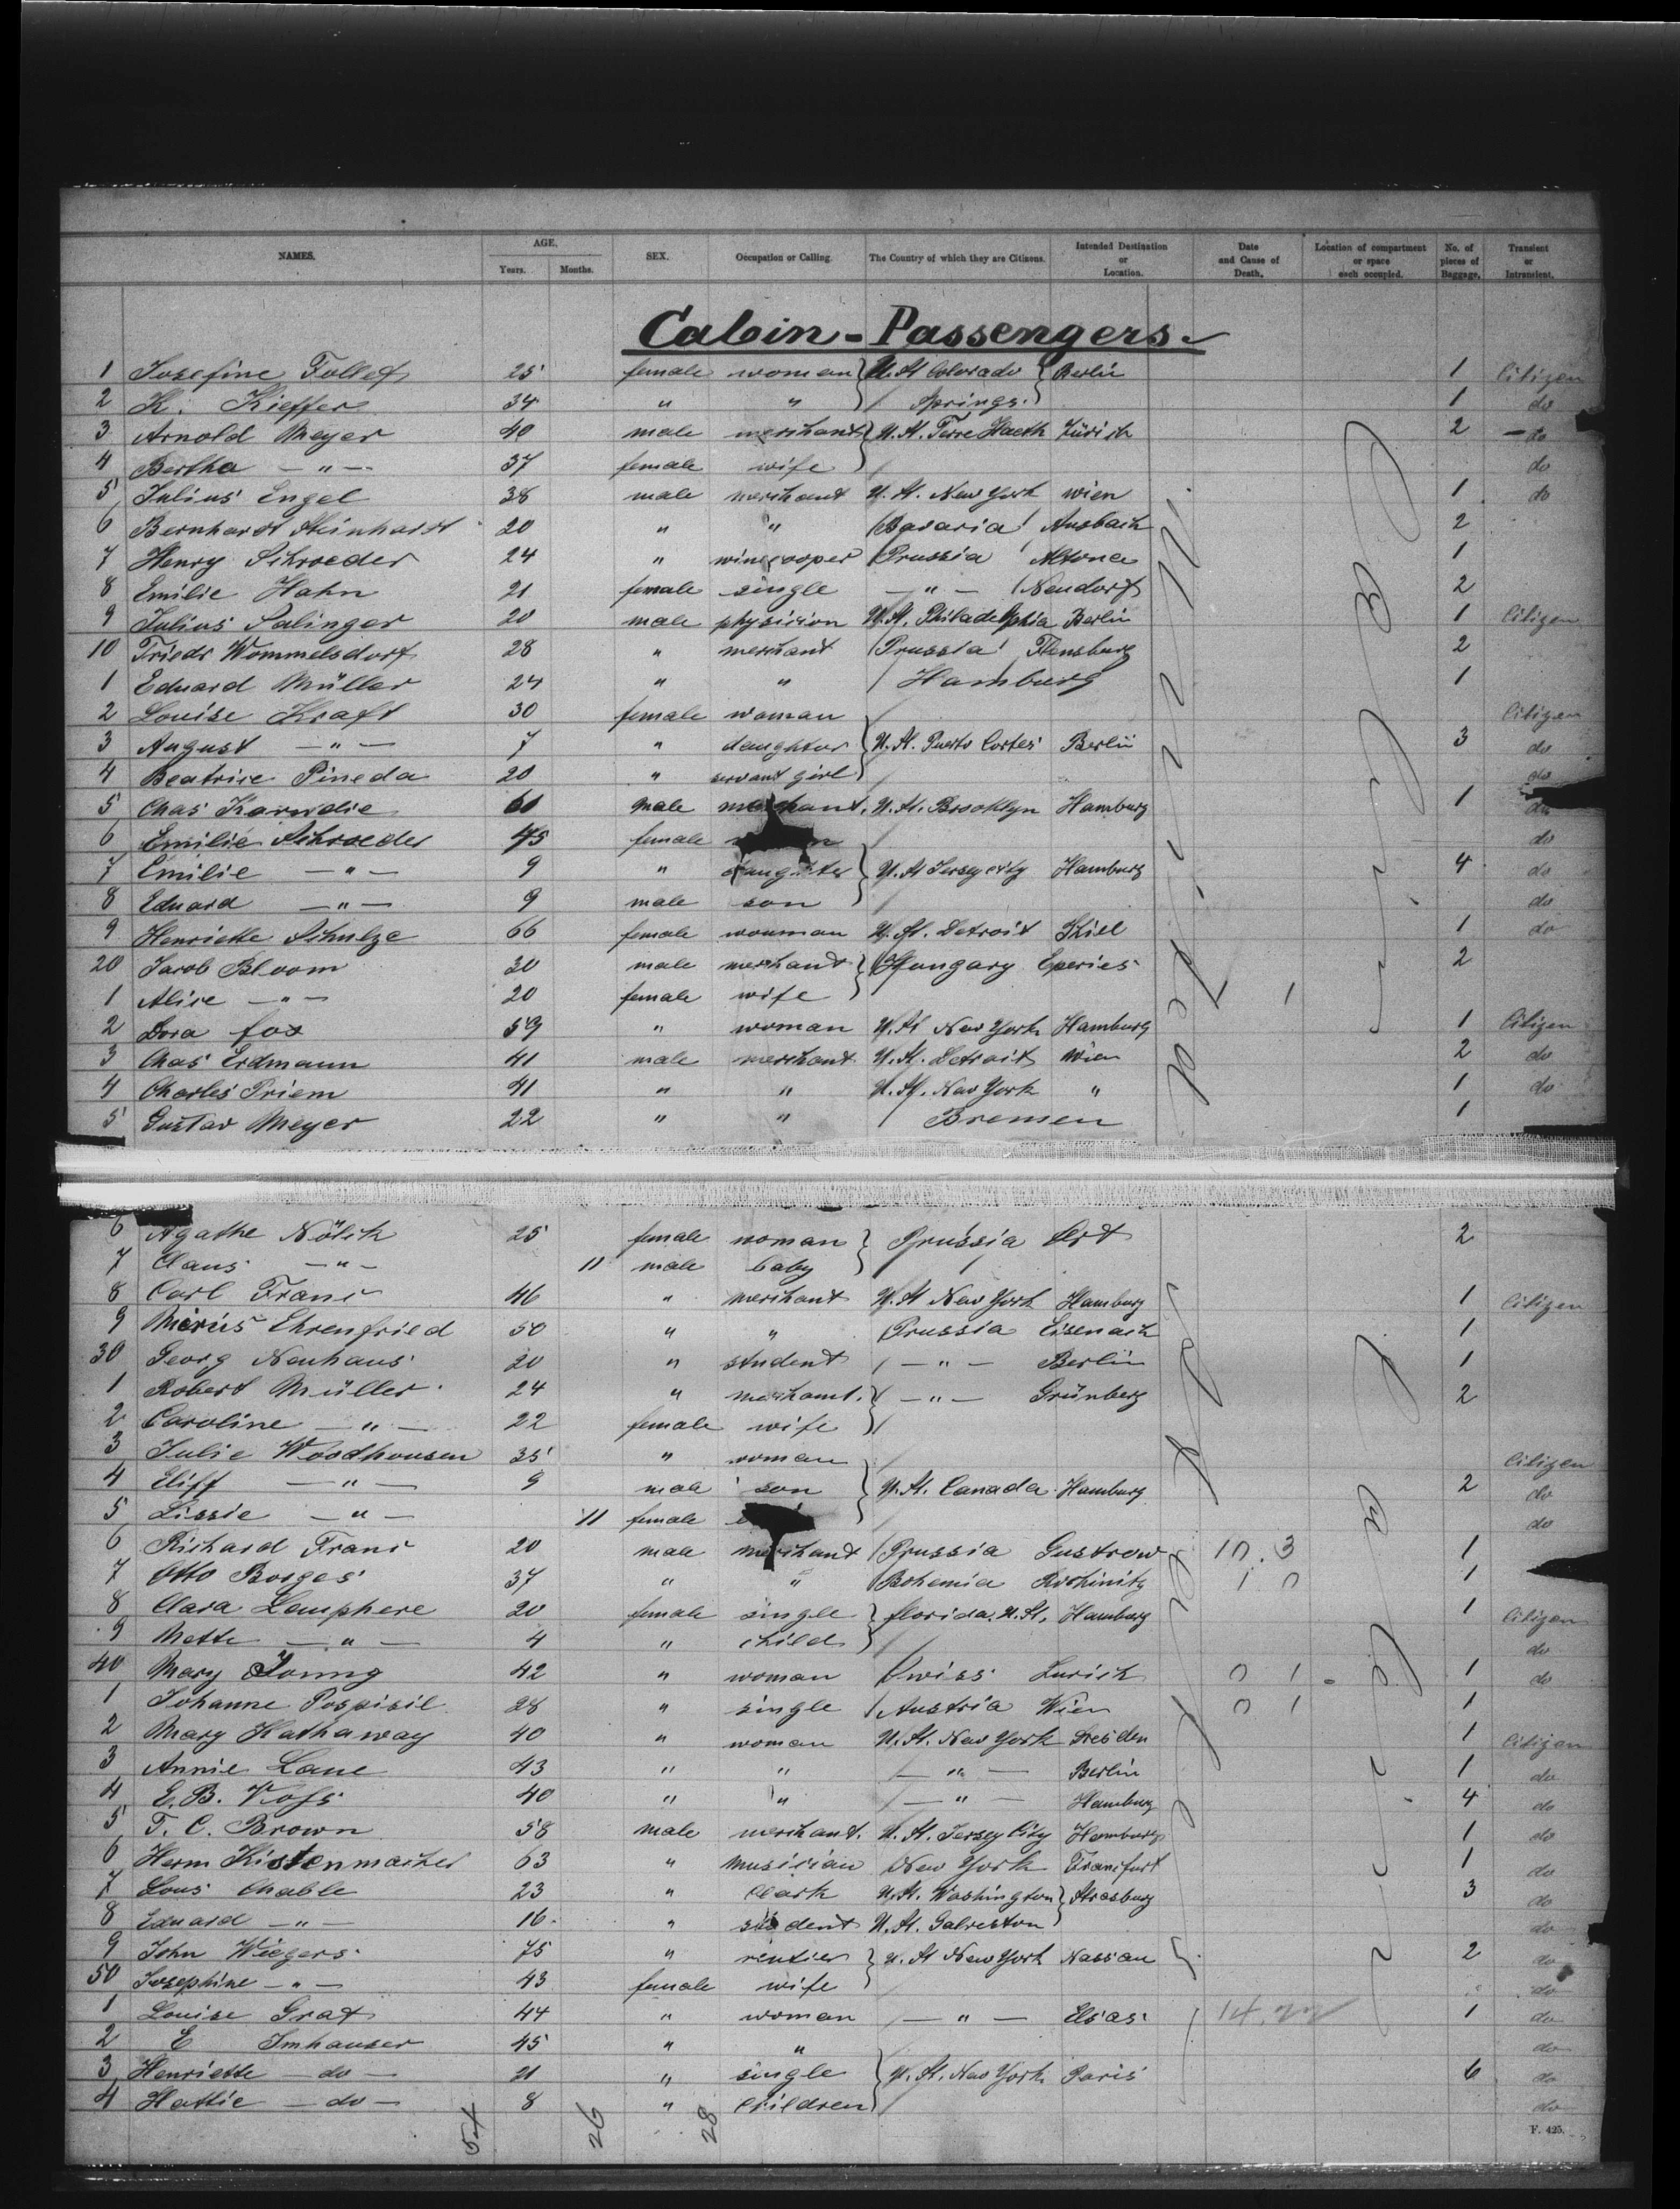 NAMES. AGE. Years. Months. SEX. Occupation or Calling. The Country of which they are Citizens. Intended Destination or Location. Date and Cause of Death. Location of compartment or space each occupied. No. of pieces of Baggage. Transient or Intransient.
Cabin-Passengers.
1 Josefine 25 female woman U. St. Colorado Berlin 1 Citizen
2 K. Kieffer 34 " " Springs. 1 do
3 Arnold Meyer 40 male merchant U. St. Terre Haeth Zürich 2 do
4 Bertha — " — 37 female wife do
5 Julius Engel 38 male merchant U. St. New York Wien 1 do
6 Bernhardt Steinhardt 20 " " Bavaria Ansbach 2
7 Henry Schroeder 24 " winecooper Prussia Altona 1
8 Emilie Hahn 21 female single — " — Neudorf 2
9 Julius Salinger 20 male physician U. St. Philadelphia Berlin 1 Citizen
10 Friedr Wommelsdorf 28 " merchant Prussia Flensburg 2
1 Eduard Müller 24 " " Hamburg 1
2 Louise Kraft 30 female woman Citizen
3 August — " — 7 " daughter U. St. Puerto Cortes Berlin 3 do
4 Beatrice Pineda 20 " servant girl do
5 Chas 60 male merchant. U. St. Brooklyn Hamburg 1 do
6 Emilie Schroeder 45 female do
7 Emilie — " — 9 " daughter U. St Jersey city Hamburg 4 do
8 Eduard — " — 9 male son do
9 Henriette Schulze 66 female wouman U. St. Detroit Kiel 1 do
20 Jacob Bloom 30 male merchant Hungary Eperies 2
1 Alice — " — 20 female wife
2 Dora fox 59 " woman U. St New York Hamburg 1 Citizen
3 Chas Erdmann 41 male merchant U. St. Detroit Wien 2 do
4 Charles Priem 41 " " U. St. New York " 1 do
5 Gustav Meyer 22 " " Bremen 1
6 Agathe Nölck 25 female woman Prussia 2
7 Claus — " — 11 male baby
8 Carl Franc 46 " merchant U. St New York Hamburg 1 Citizen
9 Ehrenfried 50 " " Prussia Eisenach 1
30 Georg Neuhaus 20 " student — " — Berlin 1
1 Robert Müller 24 " merchant. — " — Grünberg 2
2 Caroline — " — 22 female wife
3 Julie Woodhousen 35 " woman Citizen
4 Cliff — " — 9 male son U. St. Canada Hamburg 2 do
5 Lissie — " — 11 female do
6 Richard Franc 20 male merchant Prussia Gustrow 10.3 1
7 Otto Borges 37 " " Bohemia 1 0 1
8 Clara Lamphere 20 female single florida. U. St. Hamburg 1 Citizen
9 Mette — " — 4 " child do
40 Mary Young 42 " woman Swiss Zurich 0 1 1 do
1 Johanne Pospisil 28 " single Austria Wien 0 1 1
2 Mary Hathaway 40 " woman U. St. New York Dresden 1 Citizen
3 Annie Lane 43 " " — " — Berlin 1 do
4 E. B. Vofs 40 " " — " — Hamburg 4 do
5 T. C. Brown 58 male merchant. U. St. Jersey City Hamburg 1 do
6 Herm Kistenmacher 63 " musician New York Francfurt 1 do
7 Lous Chable 23 " Clark U. St. Washington Strasburg 3 do
8 Eduard — " — 16 " student U. St. Galveston do
9 John Wiegers 75 " rentier U. St New York Nassau 2 do
50 Josephine — " — 43 female wife do
1 Louise Graf 44 " woman — " — Elsas 14.22 1 do
2 E Imhauser 45 " " do
3 Henriette — do — 21 " single U. St. New York Paris 6 do
4 Hattie — do — 8 " Children do
54 26 28
F. 425.